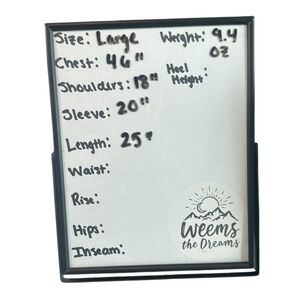 Size: Large
Weight: 9.4 oz
Chest: 46"
Heel Height:
Shoulders: 18"
Sleeve: 20"
Length: 25"
Waist:
Rise:
Hips:
Inseam:
Weems
the Dreams